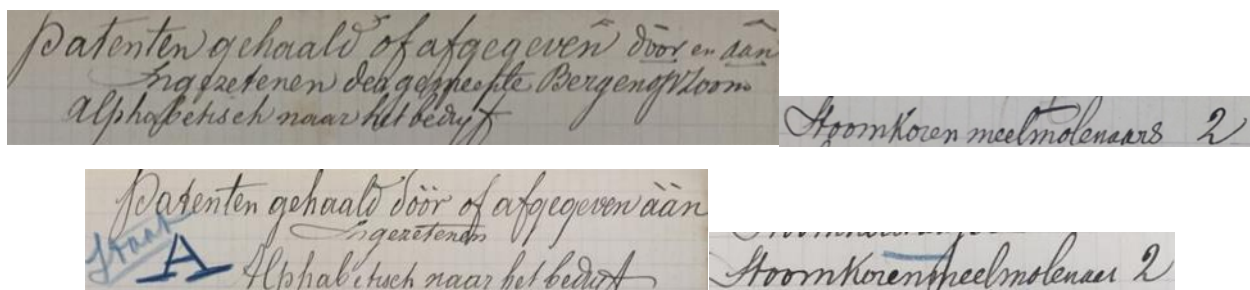 Patenten gehaald of afgegeven door en aan
Ingezetenen der gemeente Bergen op Zoom
Alphabetisch naar het bedrijf
Stoomkoren meelmolenaars 2
Patenten gehaald dóór of afgegeven áán
Ingezetenen
Staat A
Alphabetisch naar het bedrijf
Stoomkorenmeelmolenaar 2